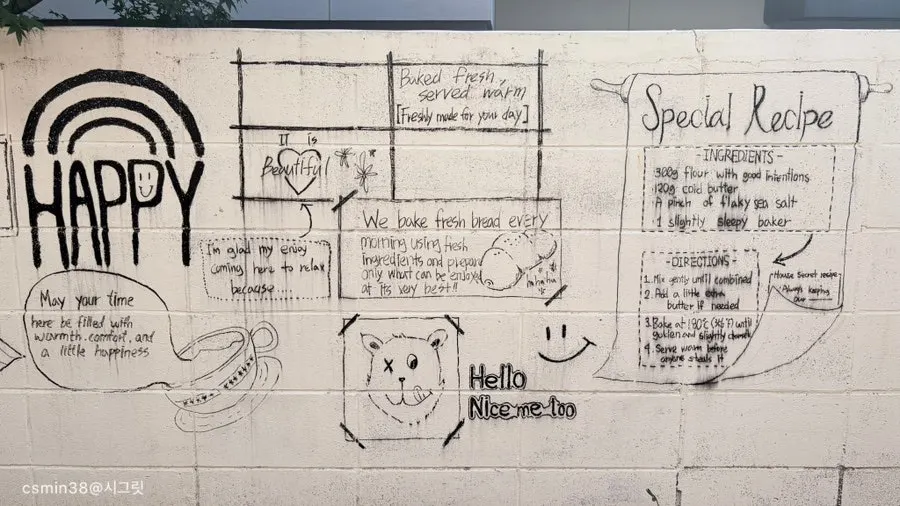 HAPPY
May your time
here be filled with
warmth, comfort, and
a little happiness
IT is
Beautiful
I'm glad my enjoy
coming here to relax
because...
Baked fresh,
served warm
[Freshly made for your day]
We bake fresh bread every
morning using fresh
ingredients and prepare
only what can be enjoyed
at its very best!!
Hello
Nice me too
Special Recipe
- INGREDIENTS -
300g flour with good intentions
120g cold butter
A pinch of flaky sea salt
1 slightly sleepy baker
- DIRECTIONS -
1. Mix gently until combined
2. Add a little extra
butter if needed
3. Bake at 180°C until
golden and slightly
4. Serve warm before
anyone steals it
House Secret recipe
Always keeping
our
csmin38@시그릿